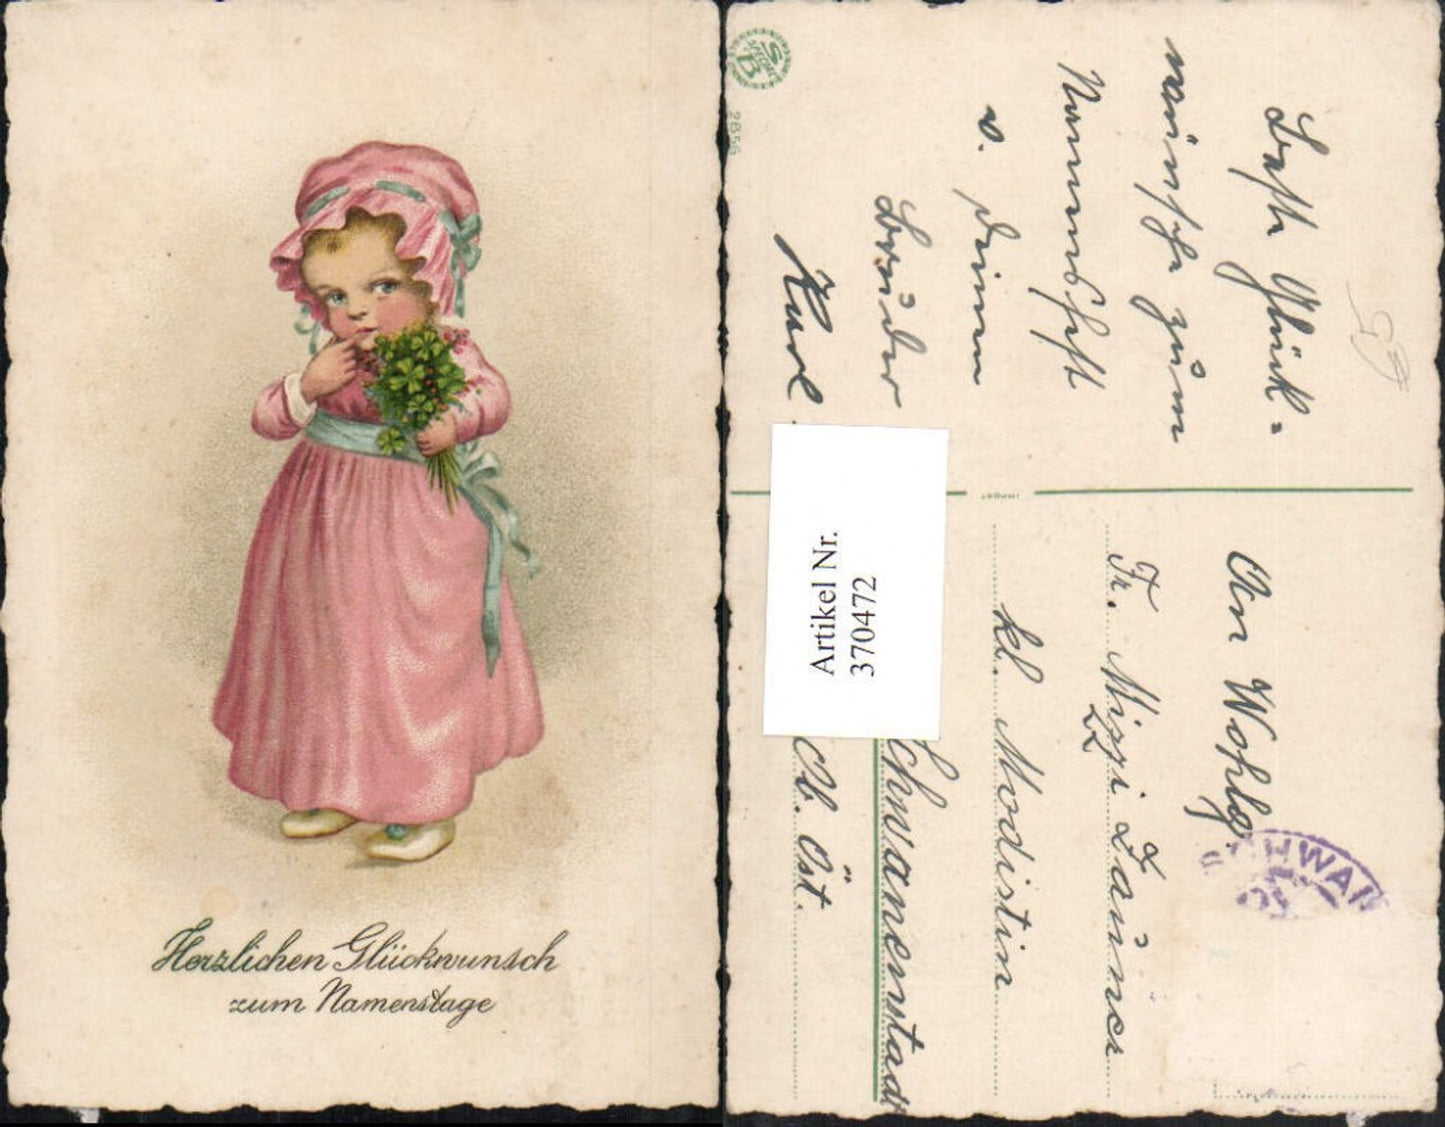 Herzlichen Glückwunsch
zum Namenstage
S B
SPECIAL
2856
Beste Glück=
wünsche zum
Namensfeste
v. Deinem
Bruder
Karl
IMPORT
Artikel Nr.
370472
An Wohlg.
Fr. Mizzi
kl. Modistin
Schwanenstadt
Ob. Öst.
SCHWAN